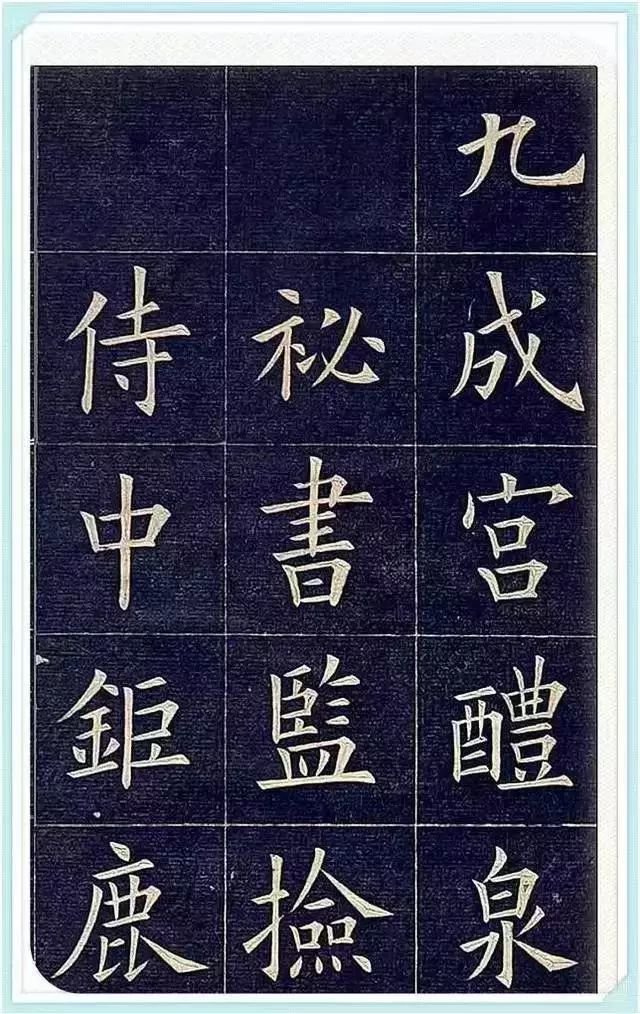 九成宫醴泉
祕書監撿
侍中鉅鹿